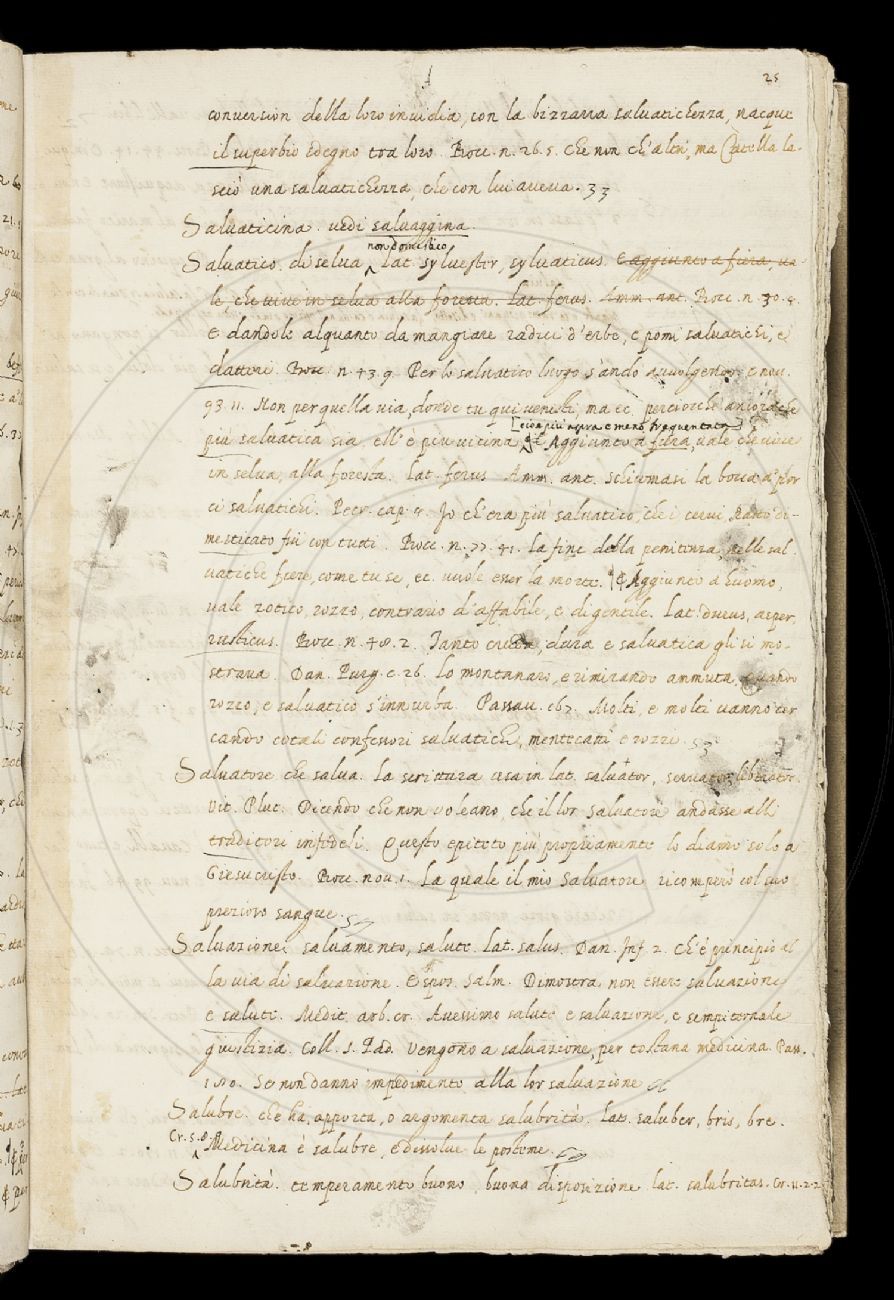 25
conversion della loro invidia, con la bizzarra salvatichezza, nacque
il superbio sdegno tra loro. Bocc. n. 26. 5. Che non ch'altri, ma Catella la-
sciò una salvatichezza, che con lui aveva.
Salvaticina. vedi salvaggina.
non domestico
Salvatico. di selva lat. sylvester, sylvaticus. E aggiunto a fiera, va-
le, che vive in selva alla foresta. Lat. ferus. Amm. ant. Bocc. n. 30. 4.
E dandole alquanto da mangiare radici d'erbe, e pomi salvatichi, e
datteri. Bocc. n. 43. 9. Per lo salvatico luogo s'andò avvolgendo. e nov.
93. 11. Non per quella via, donde tu qui venesti, ma ec. perciocchè ancorachè
[cioè più aspra e meno frequentata]
più salvatica sia, ell'è più vicina. ¶ Aggiunto a fiera, vale che vive
in selva, alla foresta. Lat. ferus Amm. ant. Schiumasi la bocca a' por
ci salvatichi. Petr. cap. 4. Io ch'era più salvatico, che i cervi, Ratto di-
mesticato fui con tutti. Bocc. n. 77. 41. La fine della penitenza nelle sal-
vatiche fiere, come tu se, ec. vuole esser la morte. ¶ Aggiunto a huomo,
vale rotico, rozzo, contrario d'affabile, e di gentile. Lat. durus, asper,
rusticus. Bocc. n. 48. 2. Tanto cruda, dura e salvatica gli si mo-
strava. Dan. Purg. c. 26. Lo montanaro, e rimirando ammuta, Quando
rozzo, e salvatico s'innurba. Passav. 167. Molti, e molti vanno cer
cando cotali confessori salvatichi, mentecatti e rozzi.
Salvatore che salva. La scrittura usa in lat. salvator, servator, liberator.
Vit. Plut. Dicendo che non voleano, che il lor Salvatore andasse alli
traditori infedeli. Questo epiteto più propriamente lo diamo solo a
Giesucristo. Bocc. nov. 1. La quale il mio Salvatore ricomperò col suo
prezioso sangue.
Salvazione. salvamento, salute. Lat. salus. Dan. Inf. 2. Ch'è principio al
la via di salvazione. Espos. Salm. Dimostra non essere salvazione
e salute. Medit. arb. cr. Avessimo salute e salvazione, e sempiternale
giustizia. Coll. S. Pad. Vengono a salvazione, per cotana medicina. Pass.
180. Se non danno impedimento alla lor salvazione
Salubre. che ha, apporta, o argomenta salubrità. Lat. saluber, bris, bre.
Cr. 5. 8.
Medicina è salubre, e dissolve le posteme.
Salubrità. temperamento buono, buona disposizione lat. salubritas. Cr. 11. 2. 2